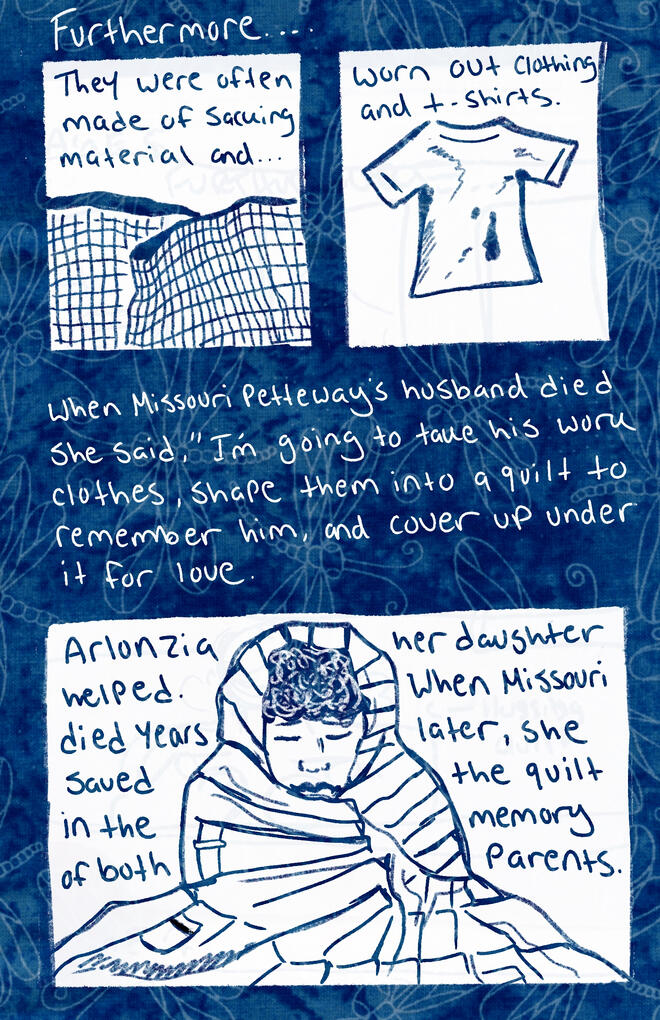 Furthermore....
They were often
made of sacking
material and...
worn out clothing
and t-shirts.
When Missouri Petteway's husband died
she said, "I'm going to take his work
clothes, shape them into a quilt to
remember him, and cover up under
it for love.
Arlonzia her daughter
helped. When Missouri
died years later, she
saved the quilt
in the memory
of both parents.